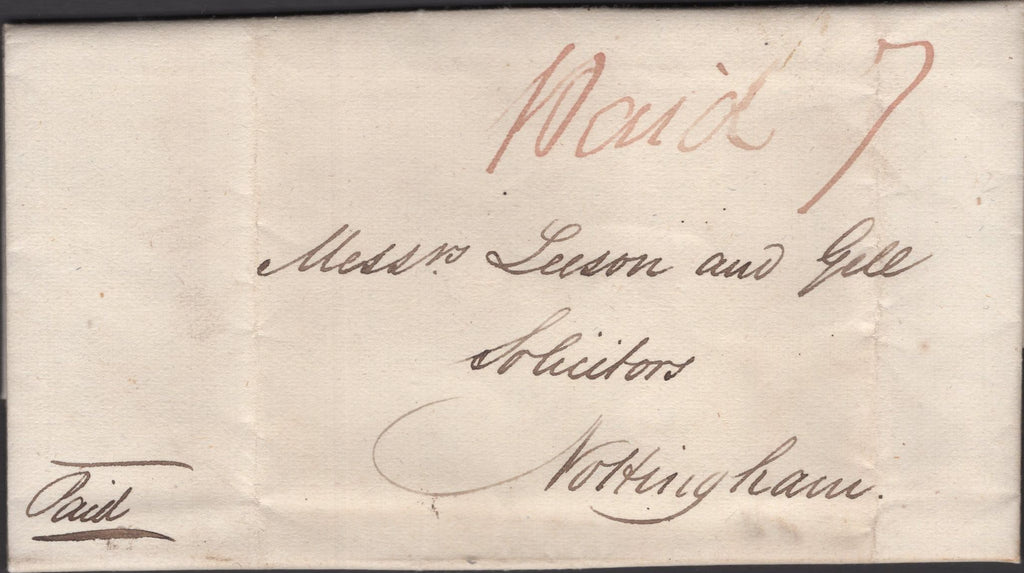 Paid 7
Messrs. Leeson and Gell
Solicitors
Nottingham.
Paid